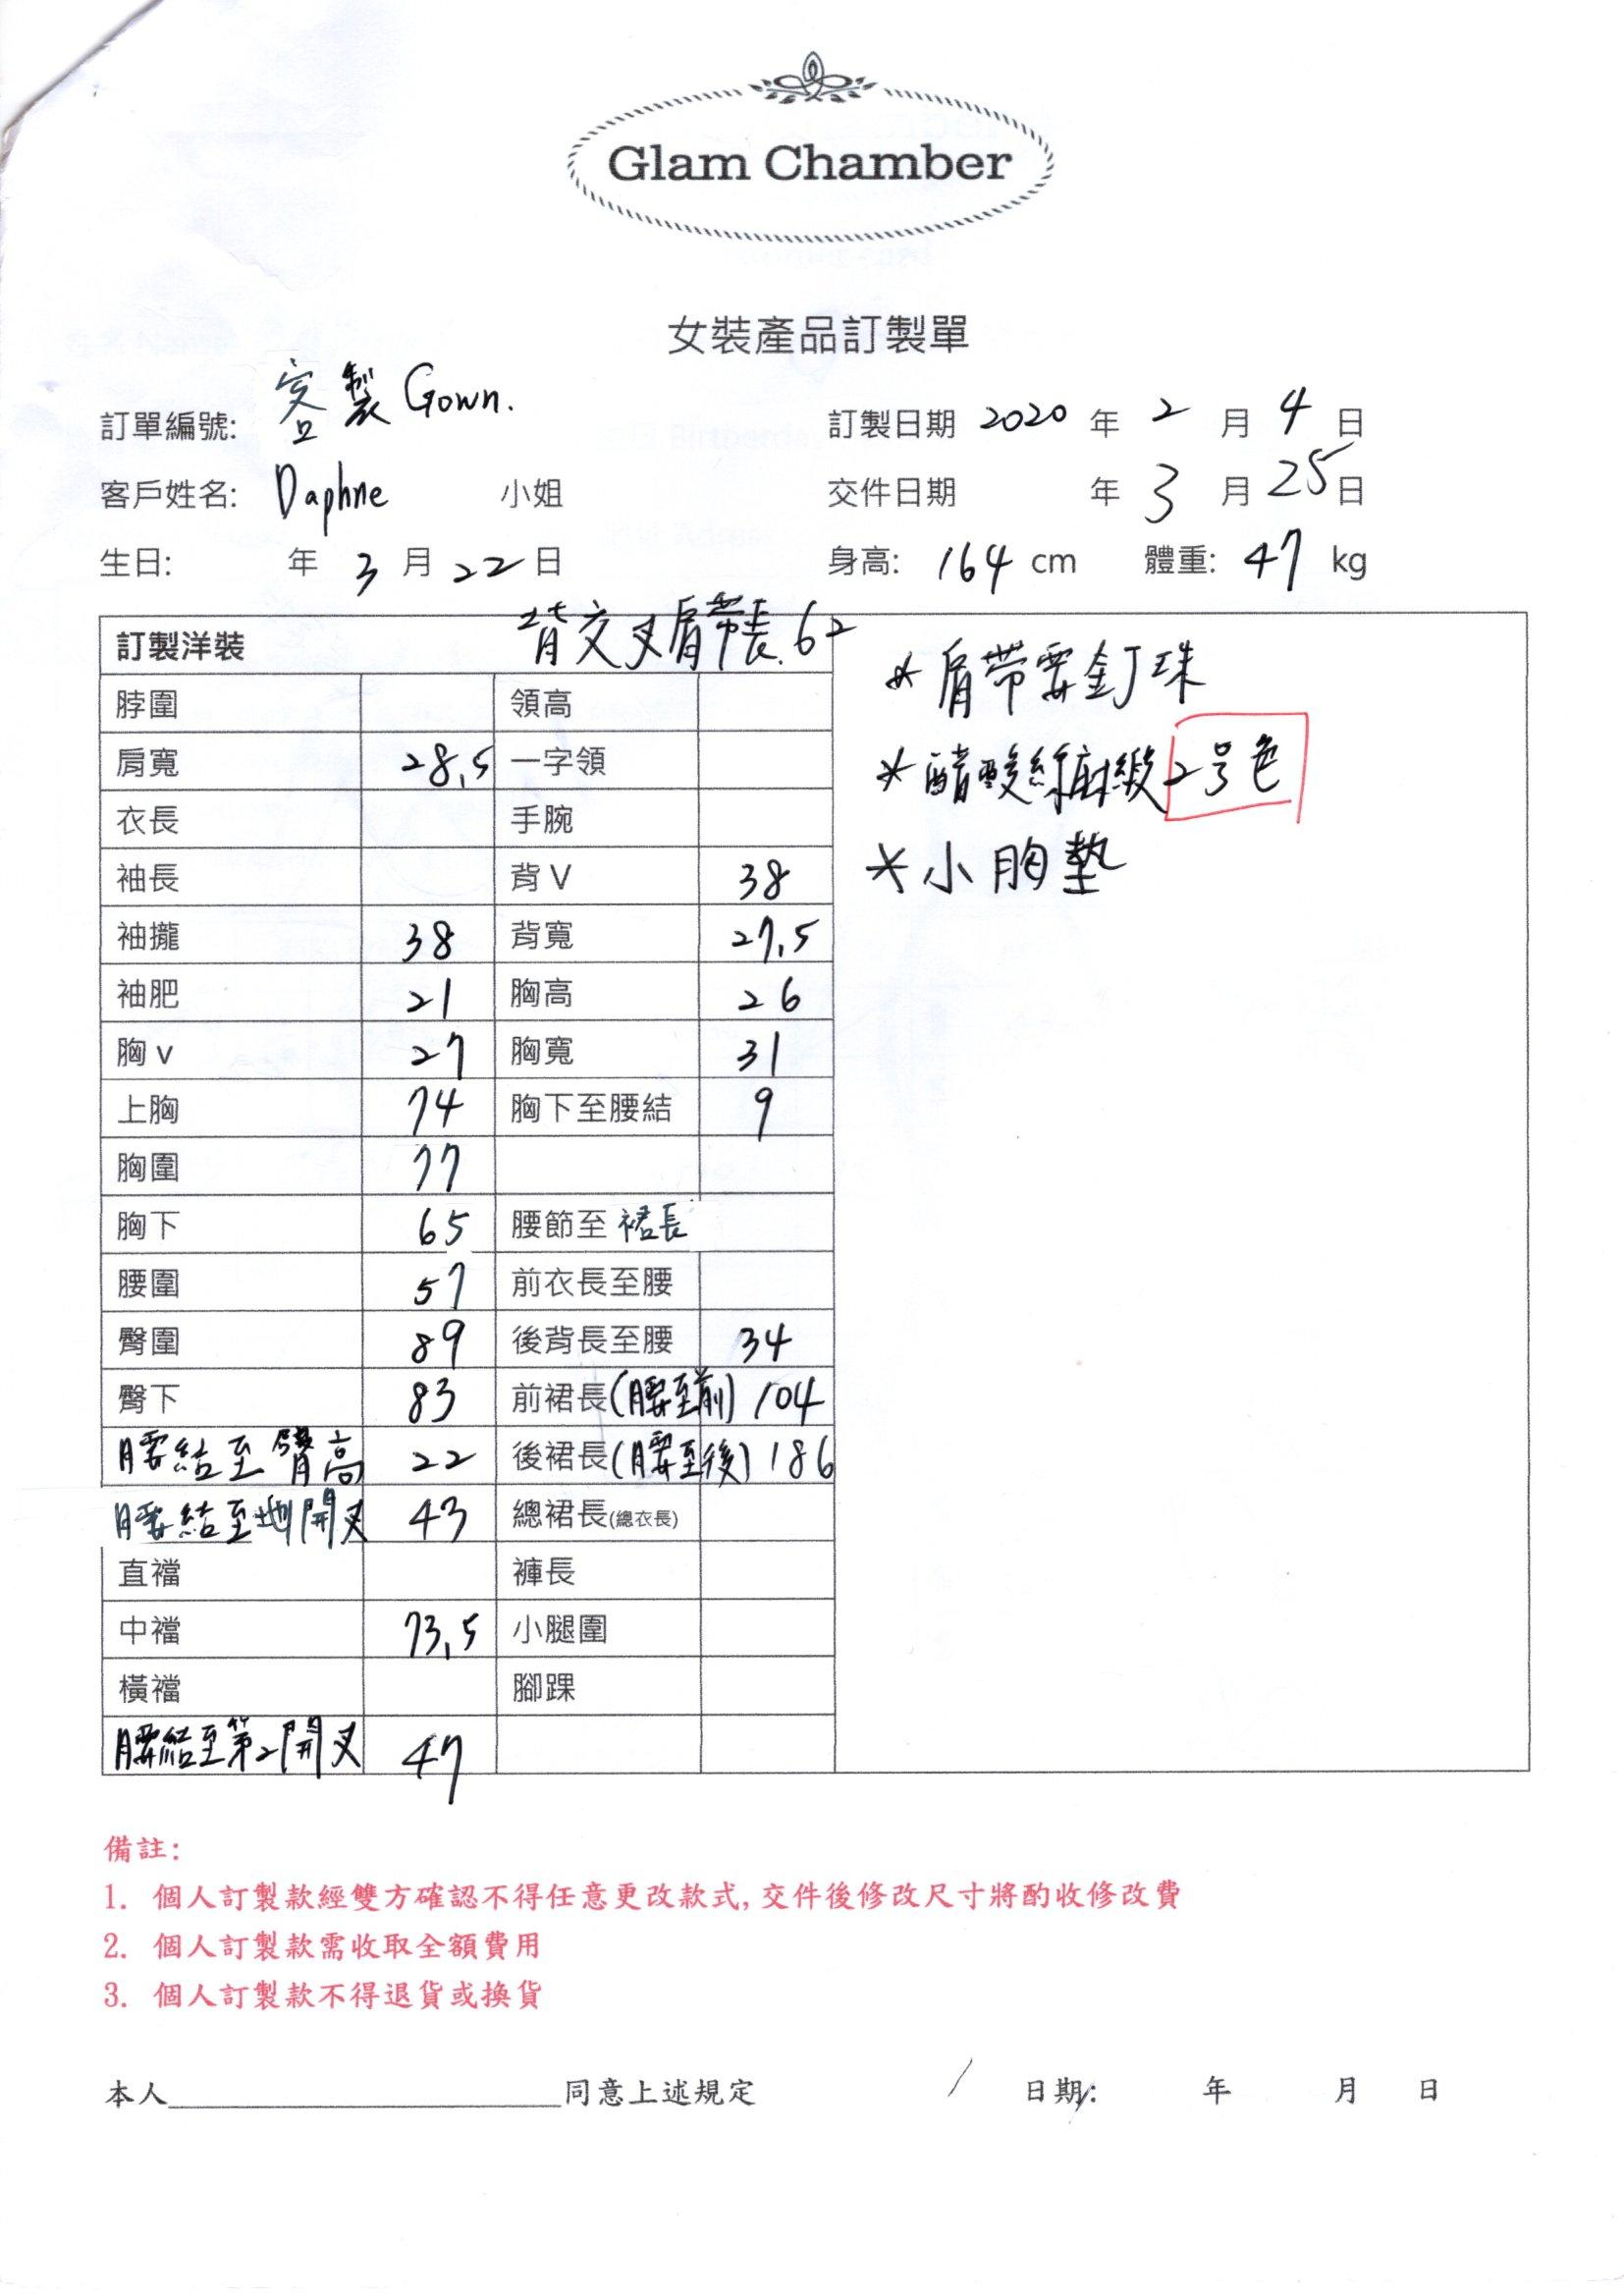 Glam Chamber
女裝產品訂製單
訂單編號: 客製 Gown.
訂製日期 2020 年 2 月 4 日
客戶姓名: Daphne 小姐
交件日期 年 3 月 25 日
生日: 年 3 月 22 日
身高: 164 cm 體重: 47 kg
訂製洋裝 背交叉肩帶長.62
脖圍 領高
肩寬 28.5 一字領
衣長 手腕
袖長 背 V 38
袖攏 38 背寬 27.5
袖肥 21 胸高 26
胸 v 27 胸寬 31
上胸 74 胸下至腰結 9
胸圍 77
胸下 65 腰節至 裙長
腰圍 57 前衣長至腰
臀圍 89 後背長至腰 34
臀下 83 前裙長(腰至前) 104
腰結至臀高 22 後裙長(腰至後) 186
腰結至地開叉 43 總裙長(總衣長)
直襠 褲長
中襠 73.5 小腿圍
橫襠 腳踝
腰結至第2開叉 47
*肩帶要釘珠
*醋酸絲麻緞2号色
*小胸墊
備註:
1. 個人訂製款經雙方確認不得任意更改款式, 交件後修改尺寸將酌收修改費
2. 個人訂製款需收取全額費用
3. 個人訂製款不得退貨或換貨
本人____________同意上述規定 日期: 年 月 日